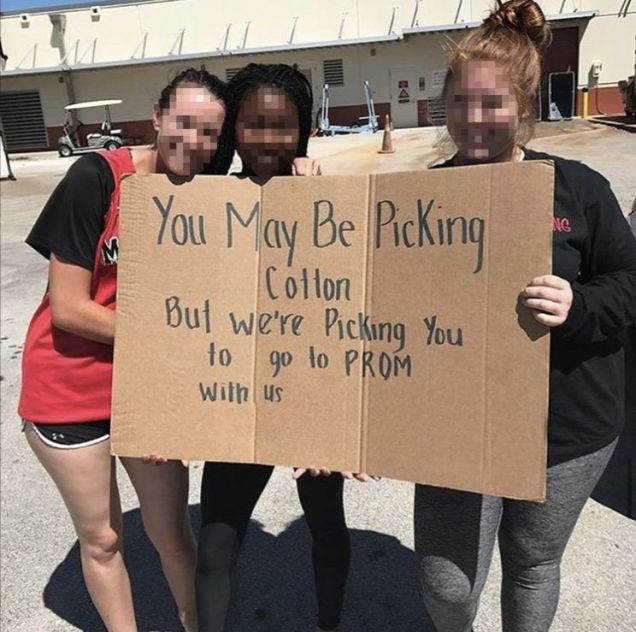 You May Be PicKing
Cotton
But we're Picking You
to go to PROM
With us
NG
M